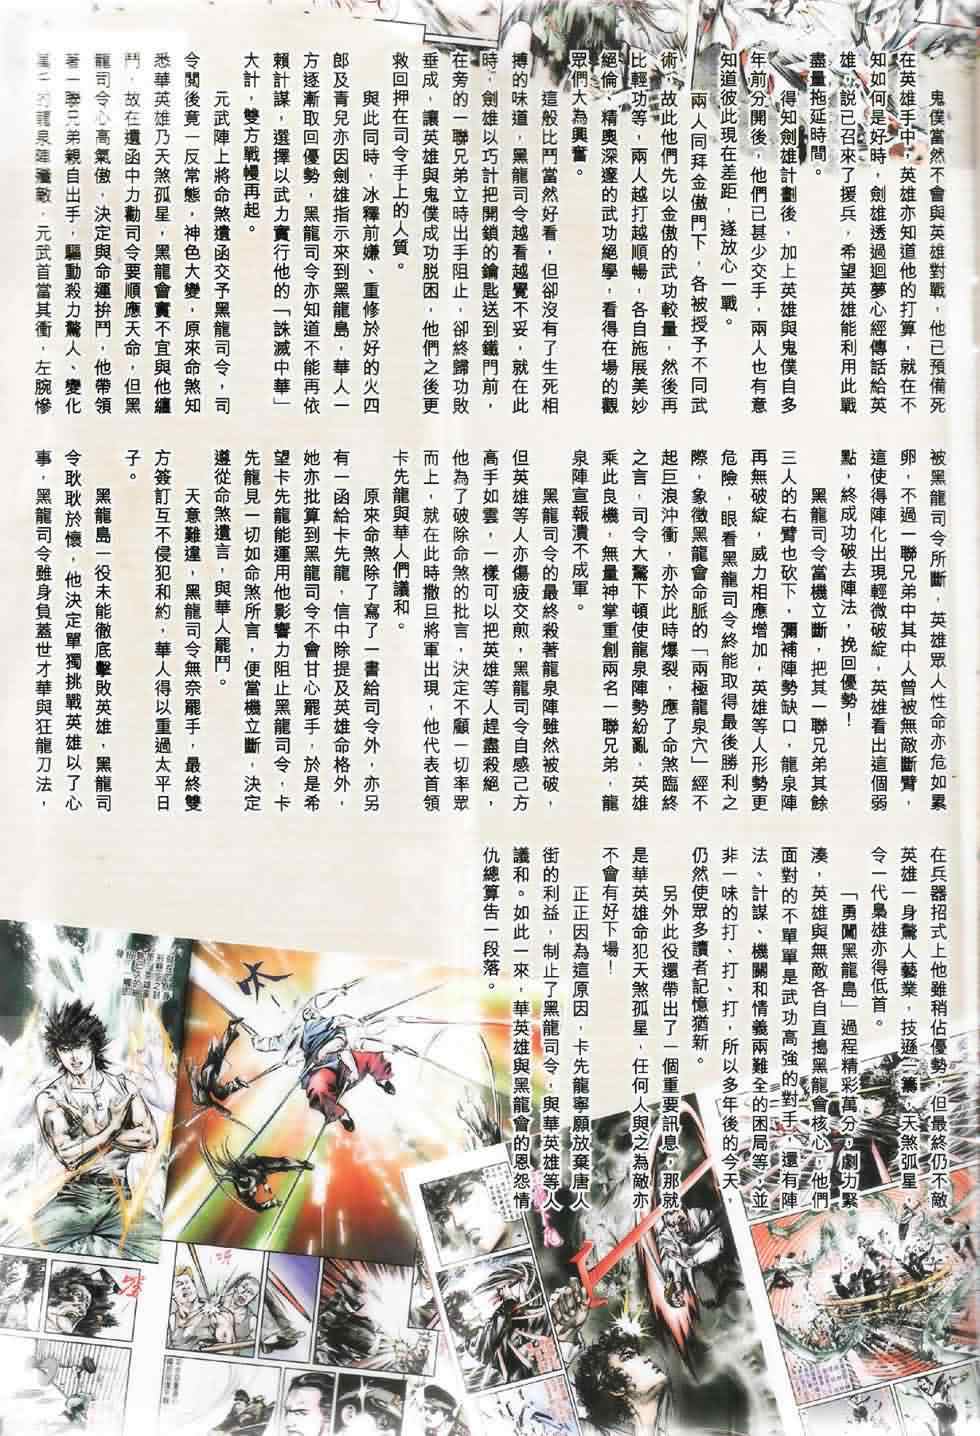 鬼僕當然不會與英雄對戰，他已預備死
在英雄手中，英雄亦知道他的打算，就在不
知如何是好時，劍雄透過迴夢心經傳話給英
雄，說已召來了援兵，希望英雄能利用此戰
盡量拖延時間。
得知劍雄計劃後，加上英雄與鬼僕自多
年前分開後，他們已甚少交手，兩人也有意
知道彼此現在差距，遂放心一戰。
兩人同拜金傲門下，各被授予不同武
術，故此他們先以金傲的武功較量，然後再
比輕功等，兩人越打越順暢，各自施展美妙
絕倫、精奧深邃的武功絕學，看得在場的觀
眾們大為興奮。
這般比鬥當然好看，但卻沒有了生死相
搏的味道，黑龍司令越看越覺不妥，就在此
時，劍雄以巧計把開鎖的鑰匙送到鐵門前，
在旁的一聯兄弟立時出手阻止，卻終歸功敗
垂成，讓英雄與鬼僕成功脫困，他們之後更
救回押在司令手上的人質。
與此同時，冰釋前嫌、重修於好的火四
郎及青兒亦因劍雄指示來到黑龍島，華人一
方逐漸取回優勢，黑龍司令亦知道不能再依
賴計謀，選擇以武力實行他的「誅滅中華」
大計，雙方戰幔再起。
元武陣上將命煞遺函交予黑龍司令，司
令閱後竟一反常態，神色大變，原來命煞知
悉華英雄乃天煞孤星，黑龍會實不宜與他纏
鬥，故在遺函中力勸司令要順應天命，但黑
龍司令心高氣傲，決定與命運拚鬥，他帶領
著一聯兄弟親自出手，驅動殺力驚人、變化
萬千的龍泉陣殲敵，元武首當其衝，左腕慘
被黑龍司令所斷，英雄眾人性命亦危如累
卵，不過一聯兄弟中其中人曾被無敵斷臂，
這使得陣化出現輕微破綻，英雄看出這個弱
點，終成功破去陣法，挽回優勢！
黑龍司令當機立斷，把其一聯兄弟其餘
三人的右臂也砍下，彌補陣勢缺口，龍泉陣
再無破綻，威力相應增加，英雄等人形勢更
危險，眼看黑龍司令終能取得最後勝利之
際，象徵黑龍會命脈的「兩極龍泉穴」經不
起巨浪沖衝，亦於此時爆裂，應了命煞臨終
之言，司令大驚下頓使龍泉陣勢紛亂，英雄
乘此良機，無量神掌重創兩名一聯兄弟，龍
泉陣宣報潰不成軍。
黑龍司令的最終殺著龍泉陣雖然被破，
但英雄等人亦傷疲交煎，黑龍司令自感己方
高手如雲，一樣可以把英雄等人趕盡殺絕，
他為了破除命煞的批言，決定不顧一切率眾
而上，就在此時撒旦將軍出現，他代表首領
卡先龍與華人們議和。
原來命煞除了寫了一書給司令外，亦另
有一函給卡先龍，信中除提及英雄命格外，
她亦批算到黑龍司令不會甘心罷手，於是希
望卡先龍能運用他影響力阻止黑龍司令，卡
先龍見一切如命煞所言，便當機立斷，決定
遵從命煞遺言，與華人罷鬥。
天意難違，黑龍司令無奈罷手，最終雙
方簽訂互不侵犯和約，華人得以重過太平日
子。
黑龍島一役未能徹底擊敗英雄，黑龍司
令耿耿於懷，他決定單獨挑戰英雄以了心
事，黑龍司令雖身負蓋世才華與狂龍刀法，
在兵器招式上他雖稍佔優勢，但最終仍不敵
英雄一身驚人藝業，技遜一籌，天煞孤星，
令一代梟雄亦得低首。
「勇闖黑龍島」過程精彩萬分，劇力緊
湊，英雄與無敵各自直搗黑龍會核心，他們
面對的不單單是武功高強的對手，還有陣
法、計謀、機關和情義兩難全的困局等，並
非一味的打、打、打，所以多年後的今天，
仍然使眾多讀者記憶猶新。
另外此役還帶出了一個重要訊息，那就
是華英雄命犯天煞孤星，任何人與之為敵亦
不會有好下場！
正正因為這原因，卡先龍寧願放棄唐人
街的利益，制止了黑龍司令，與華英雄等人
議和。如此一來，華英雄與黑龍會的恩怨情
仇總算告一段落。